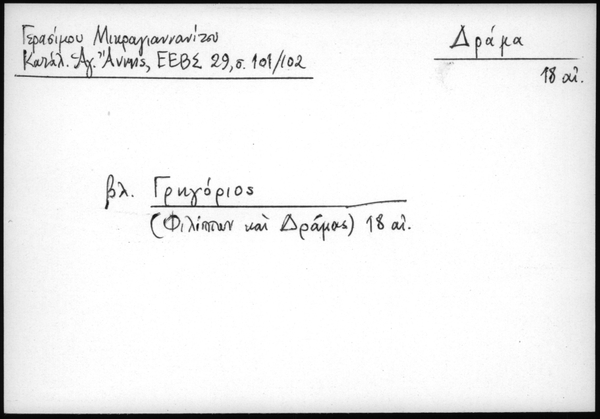 Γερασίμου Μικραγιαννανίτου
Κατάλ. Ἁγ. Ἄννης, ΕΕΒΣ 29, σ. 101/102
Δράμα
18 αἰ.
βλ. Γρηγόριος
(Φιλίππων καὶ Δράμας) 18 αἰ.